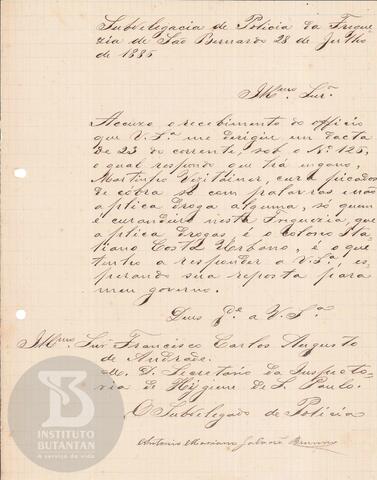 Subdelegacia de Policia da Fregue
zia de São Bernardo 28 de Julho
de 1885
Illmo. Snr.
Accuso o recebimento do officio
que V. Sª. me dirigiu em dacta
de 23 do corrente, sob o Nº 125,
o qual respondo que há engano,
Martinho cura picadas
de cóbra só com palavras e não
aplica droga alguma, só quem
é curandeiro nesta Freguezia, que
aplica drogas é o colono Ita
liano Costa Urbano, é o que
tenho a responder a V. Sª., es
perando sua reposta para
meu governo.
Deus Gde. a V. Sª.
Illmo. Snr. Francisco Carlos Augusto
de Andrade.
M. D. Secretario da Inspecto
ria de Hygiene de S. Paulo.
O Subdelegado de Policia
Antonio Mariano
INSTITUTO
BUTANTAN
A serviço da vida